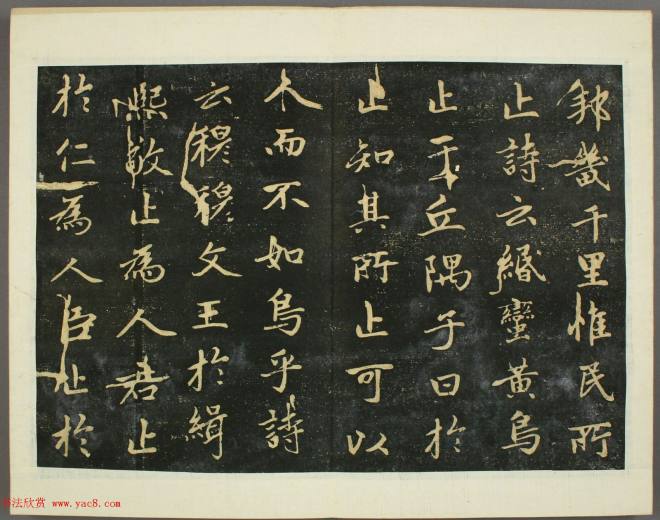 邦畿千里惟民所
止詩云緡蠻黃鳥
止于丘隅子曰於
止知其所止可以
人而不如鳥乎詩
云穆穆文王於緝
熙敬止為人君止
於仁為人臣止於
书法欣赏 www.yac8.com